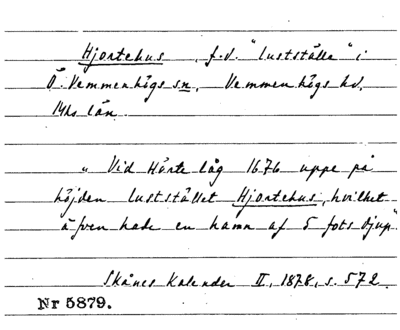 Hjortehus, f.d. "lustställe" i
Ö. Vemmenhögs sn, Vemmenhögs hd,
Mhs län.
"Vid Hörte låg 1676 uppe på
höjden lustslället Hjortehus, hvilket
äfven hade en hamn af 5 fots djup".
Skånes Kalender II, 1878, s. 572.
Nr 5879.